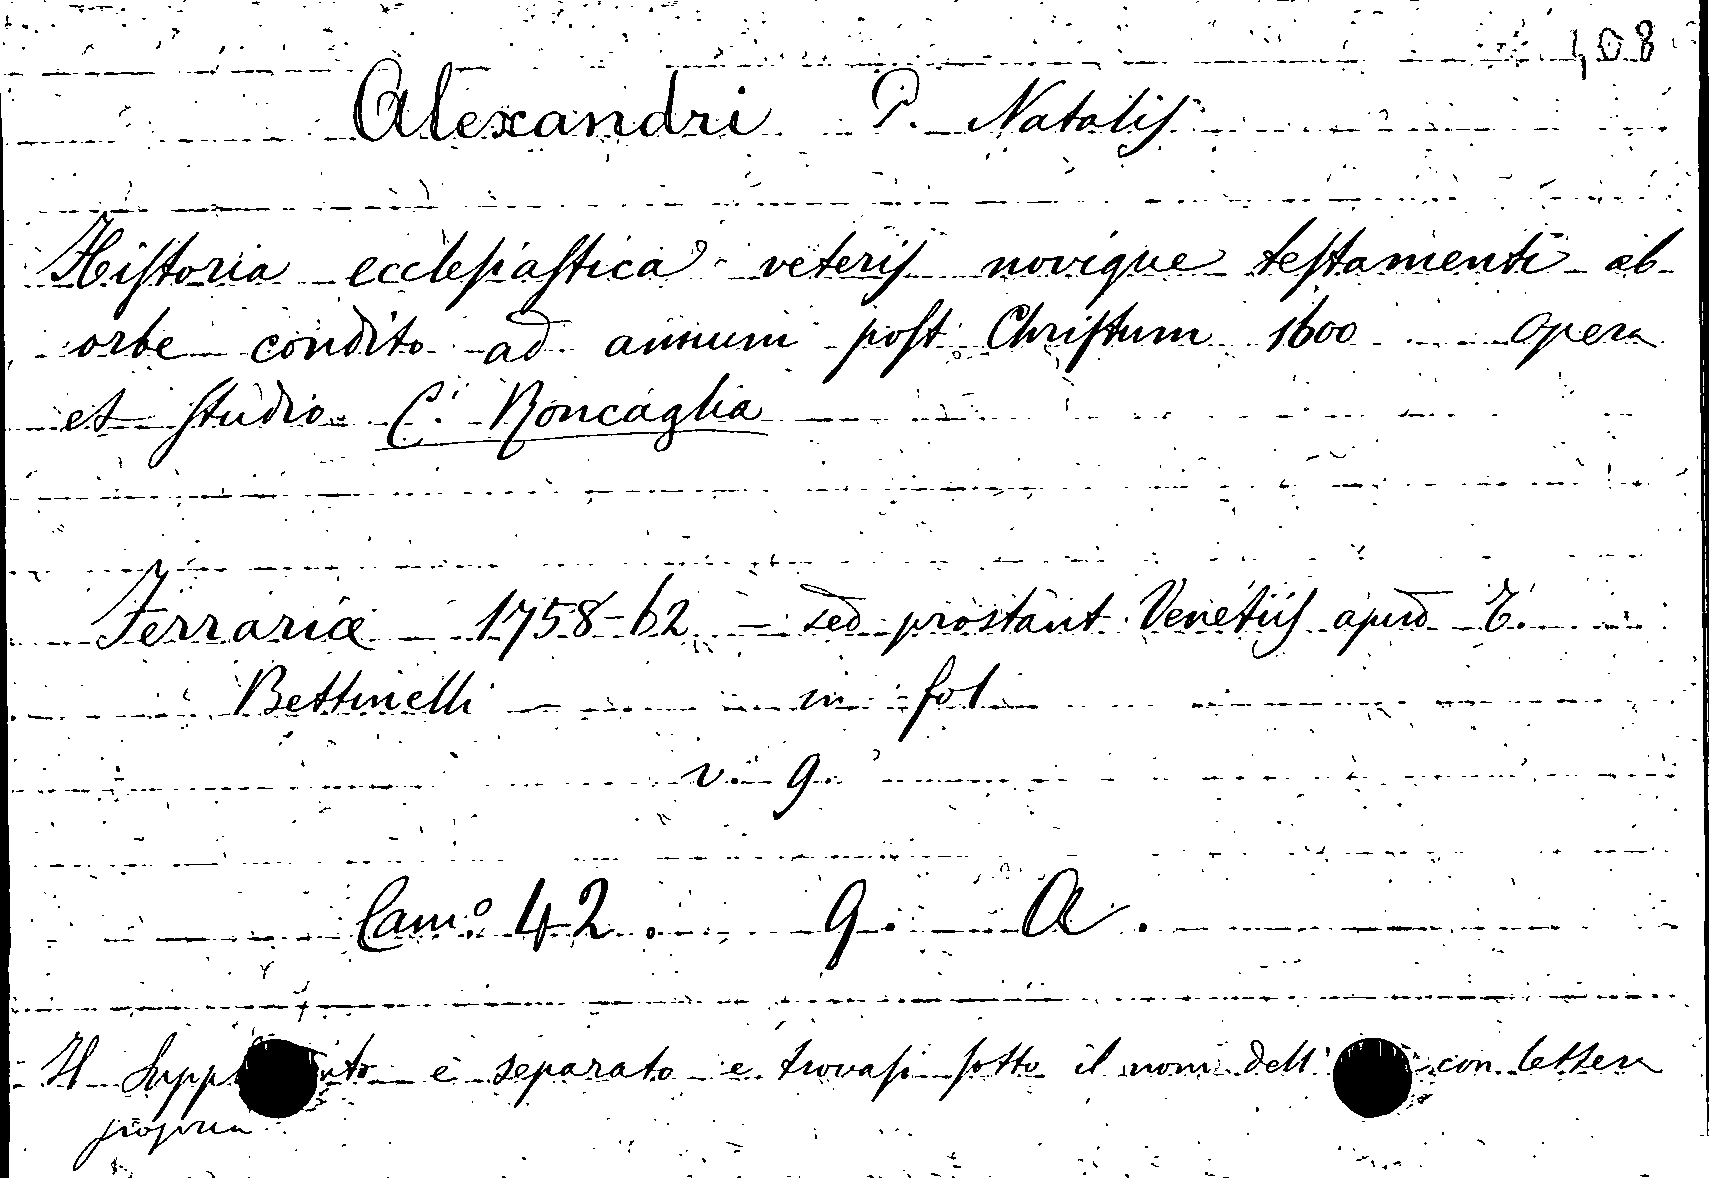 108
Alexandri P. Natalis
Historia ecclesiastica veteris novique testamenti ab
orbe condito ad annum post Christum 1600 opera
et studio C. Roncaglia
Ferrariæ 1758-62 - sed prostant Venetiis apud T.
Bettinelli - in fol
v. 9.
Cam.º 42. 9. A.
Il è separato e trovasi sotto il nome dell' con lettera
propria